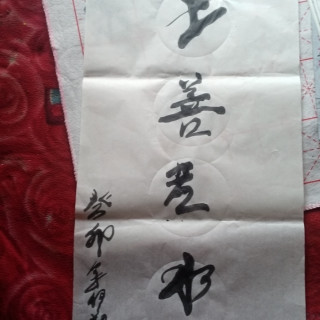 上善若水
癸卯年